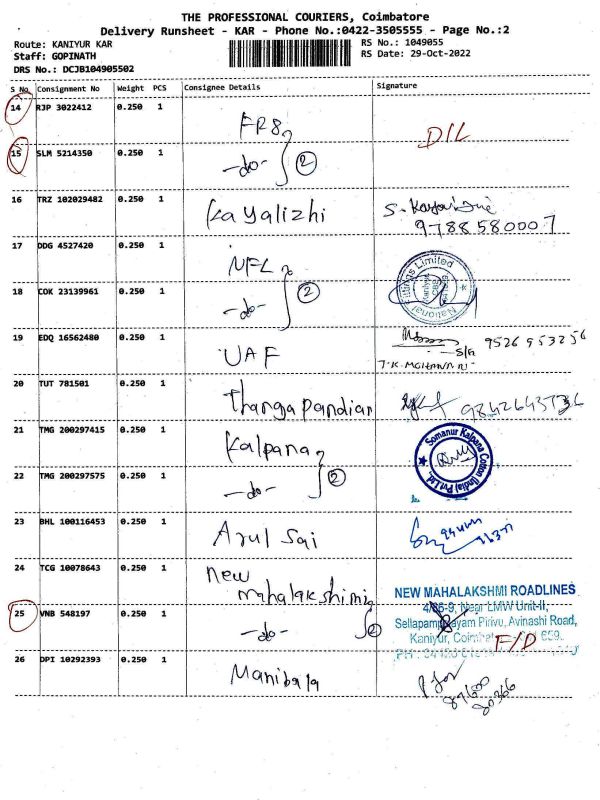 THE PROFESSIONAL COURIERS, Coimbatore
Delivery Runsheet - KAR - Phone No.:0422-3505555 - Page No.:2
Route: KANIYUR KAR RS No.: 1049055
Staff: GOPINATH RS Date: 29-Oct-2022
DRS No.: DCJB104905502
S No. Consignment No Weight PCS Consignee Details Signature
14 RJP 3022412 0.250 1 FR8 D/L
15 SLM 5214350 0.250 1 -do- 2
16 TRZ 102029482 0.250 1 Kayalizhi
9788580007
17 DDG 4527420 0.250 1 NFL
18 COK 23139961 0.250 1 -do- 2 National Fittings Limited
19 EDQ 16562480 0.250 1 UAF 9526953256
20 TUT 781501 0.250 1 Thangapandian
21 TMG 200297415 0.250 1 Kalpana Somanur Kalpana Cotton (India) Pvt. Ltd.
22 TMG 200297575 0.250 1 -do- 2
23 BHL 100116453 0.250 1 Arul Sai
24 TCG 10078643 0.250 1 New mahalakshimi
NEW MAHALAKSHMI ROADLINES
25 VNB 548197 0.250 1 -do- 2 Near LMW Unit-II,
Pirivu, Avinashi Road,
Kaniyur, 659. F/D
26 DPI 10292393 0.250 1 Manibala
87600
80366